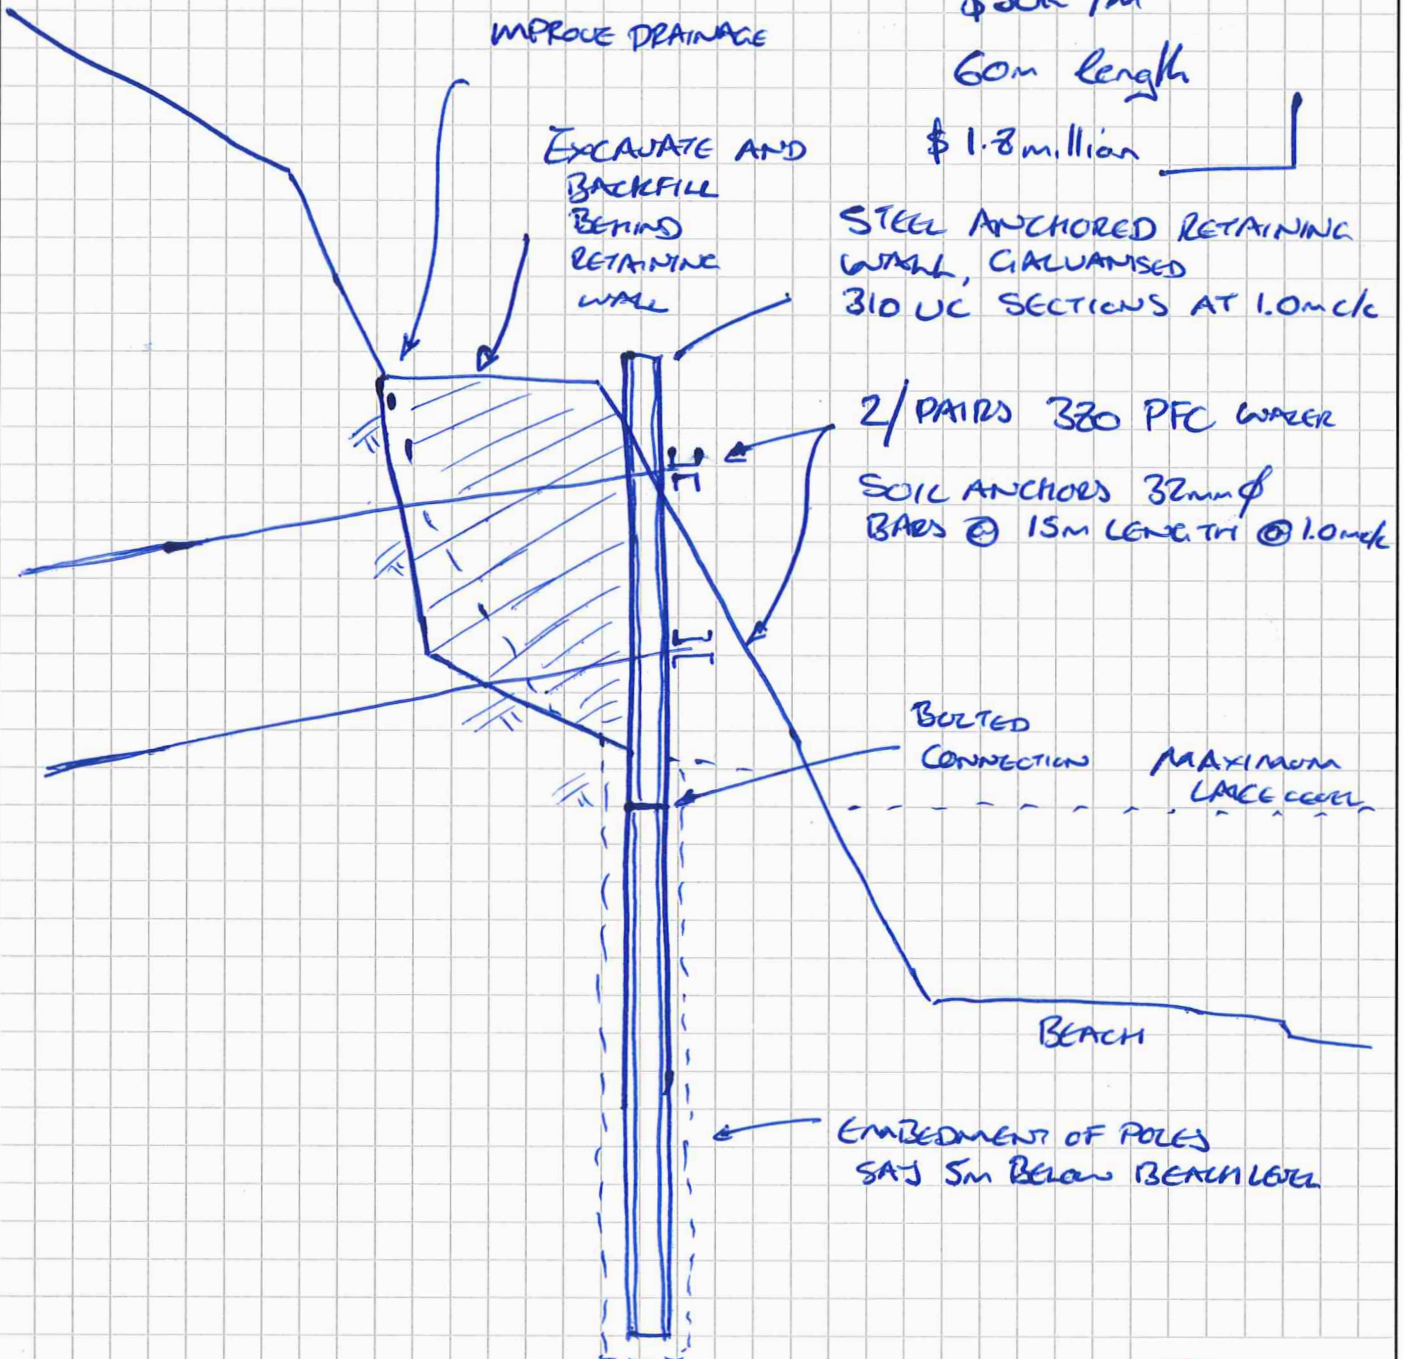 IMPROVE DRAINAGE
60m length
$ 1.8 million
EXCAVATE AND
BACKFILL
BEHIND
RETAINING
WALL
STEEL ANCHORED RETAINING
WALL, GALVANISED
310 UC SECTIONS AT 1.0m c/c
2/ PAIRS 380 PFC WALER
SOIL ANCHORS 32mm ϕ
BARS @ 15M LENGTH @ 1.0m c/c
BOLTED
CONNECTION
MAXIMUM
LAKE LEVEL
BEACH
EMBEDMENT OF POLES
SAY 5m BELOW BEACH LEVEL